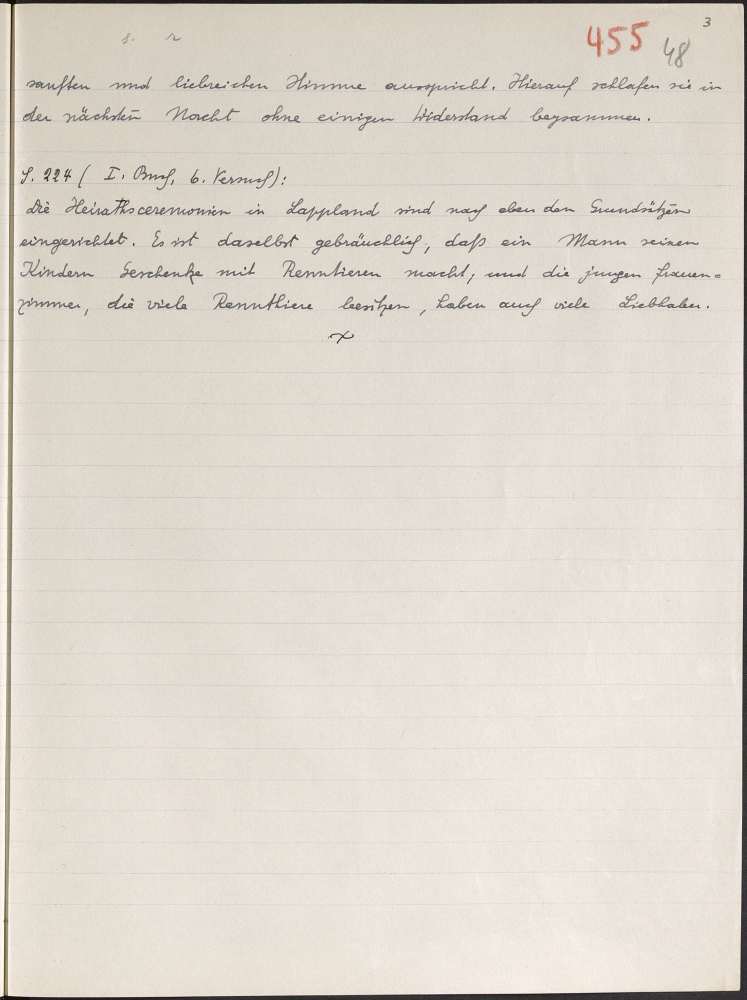 3
455 48
sanften und liebreichen Stimme ausspricht. Hierauf schlafen sie in
der nächsten Nacht ohne einigen Widerstand beysammen.
S. 224 ( I. Buch, 6. Versuch):
Die Heirathsceremonien in Lappland sind nach eben den Grundsätzen
eingerichtet. Es ist daselbst gebräuchlich, daß ein Mann seinen
Kindern Geschenke mit Renntieren macht; und die jungen Frauen=
zimmer, die viele Rennthiere besitzen, haben auch viele Liebhaber.